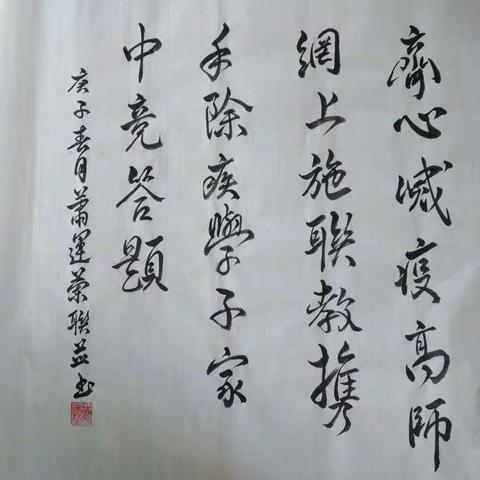 齊心滅疫高師
網上施聯教攜
手除疾學子家
中竞答題
庚子春月蕭運蘭聯並书